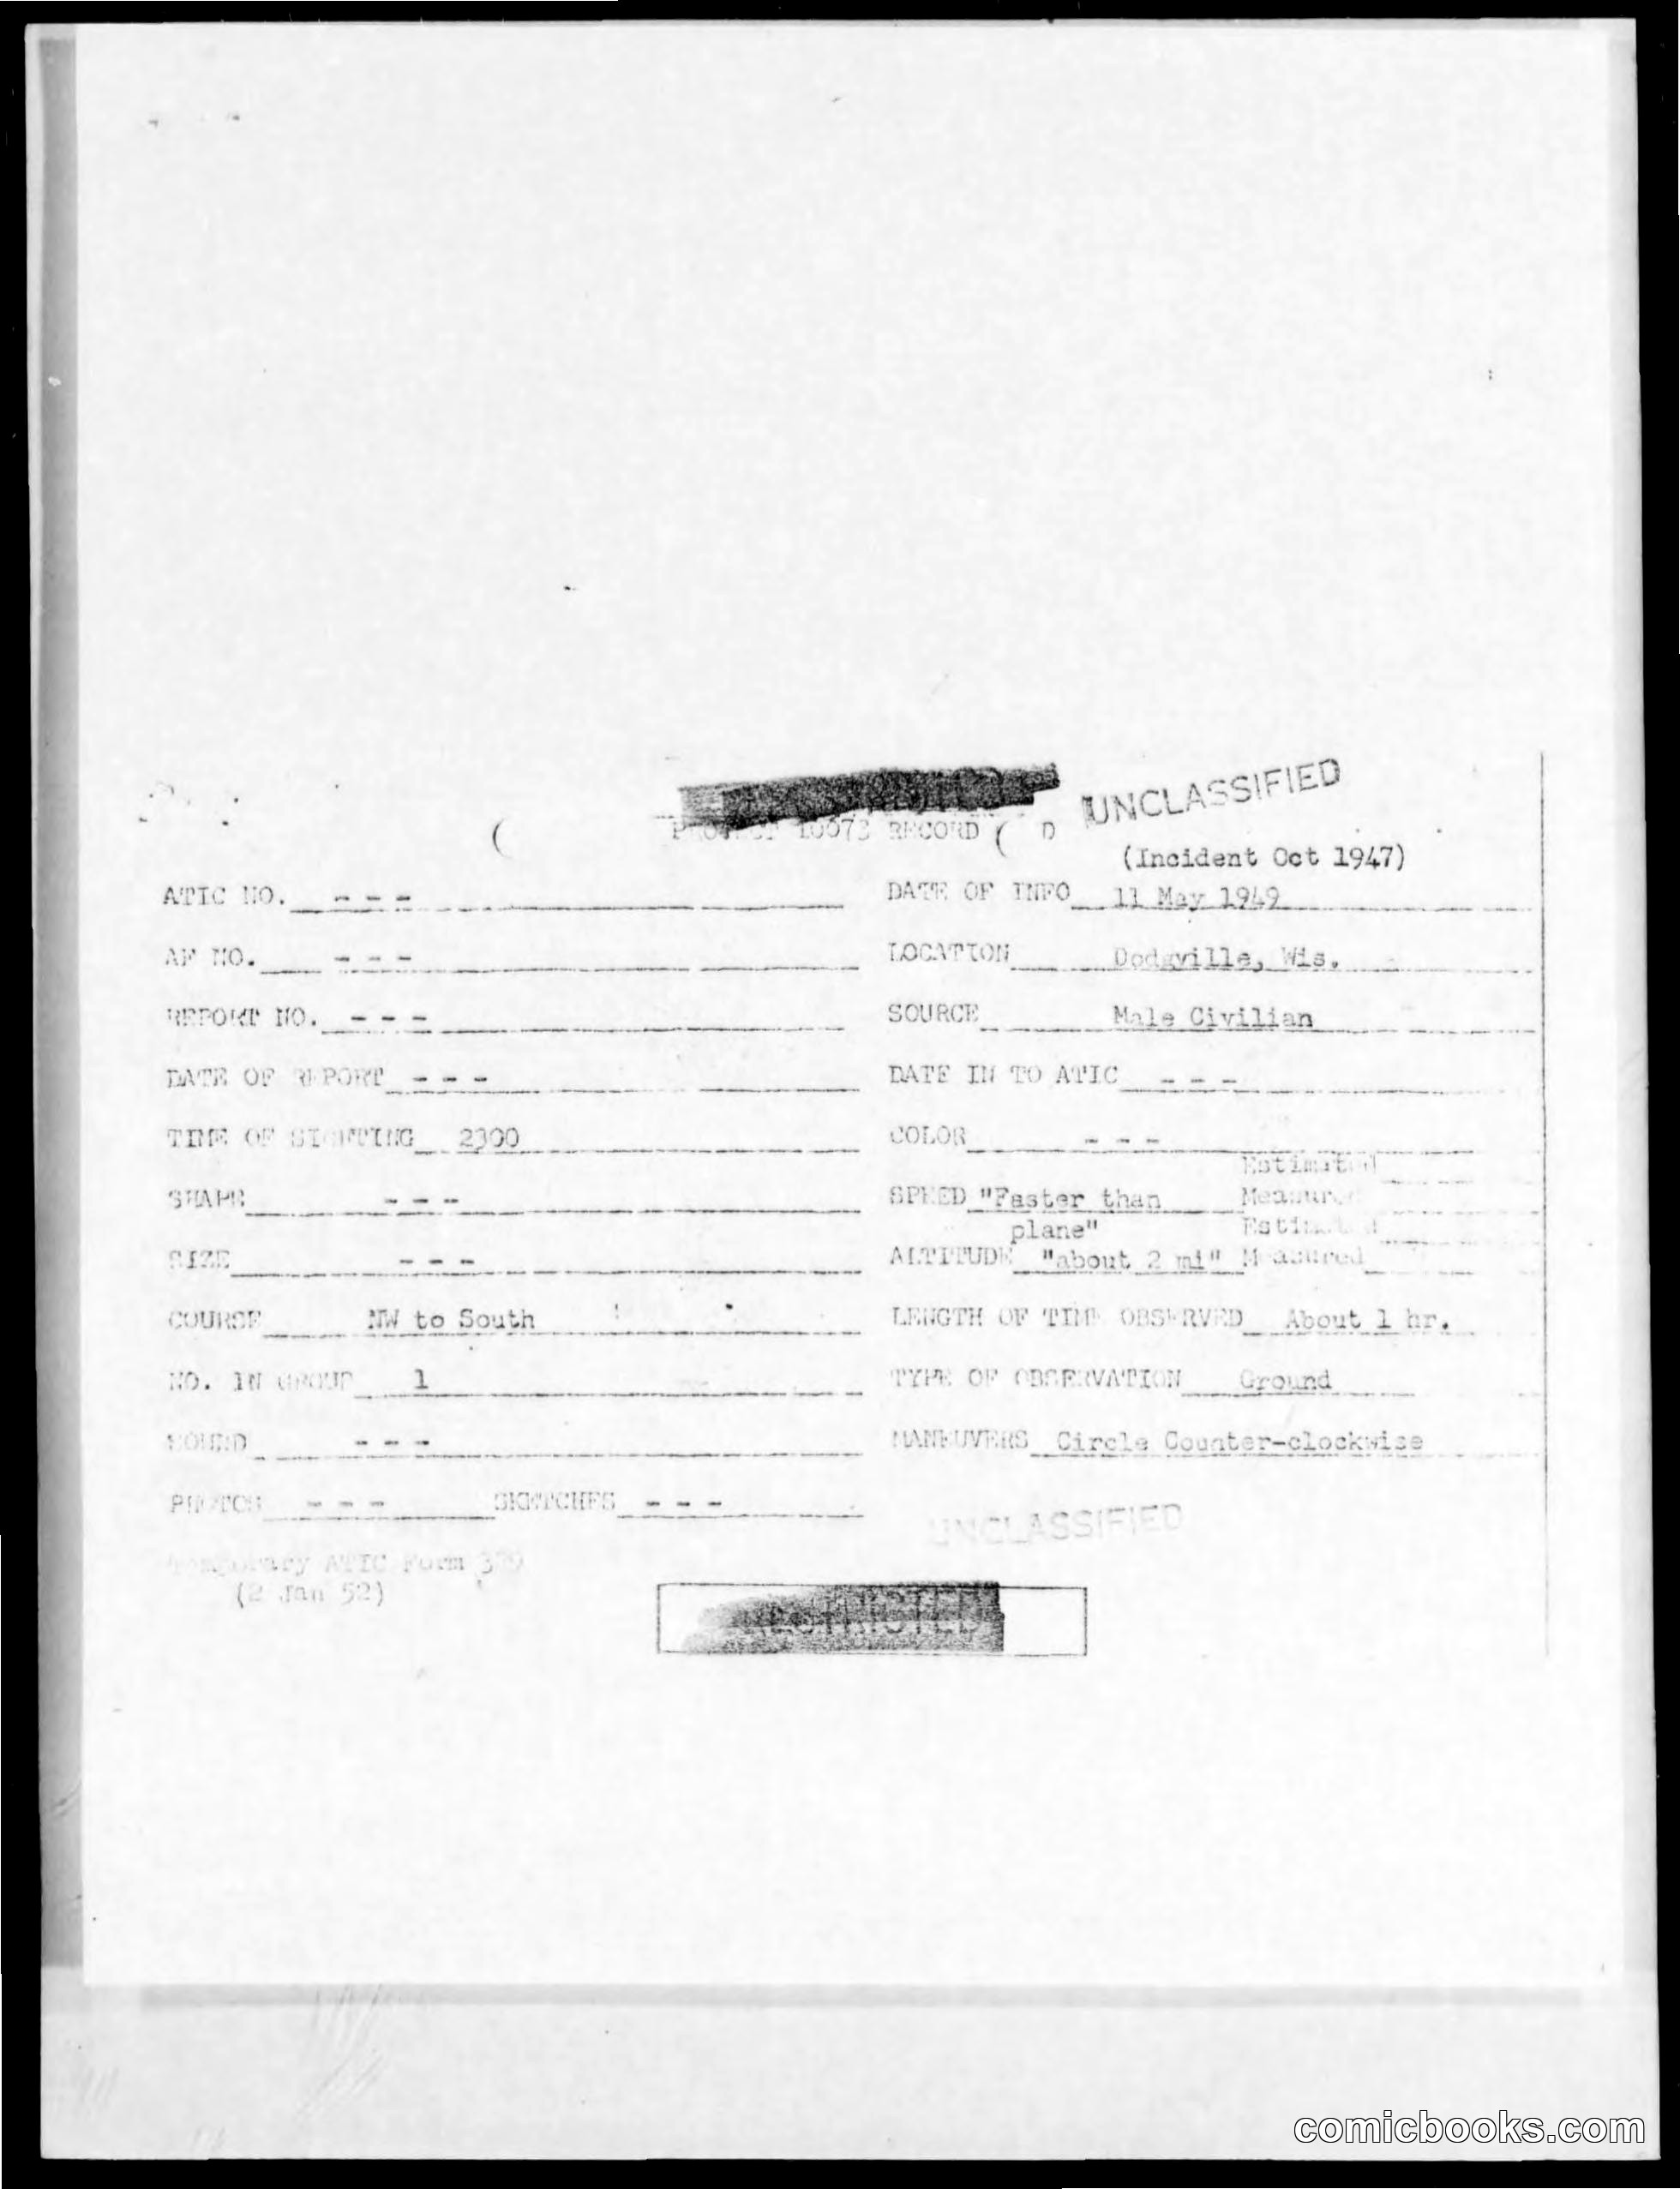 UNCLASSIFIED
10073 RECORD ( D
(Incident Oct 1947)
ATIC NO. - - - DATE OF INFO 11 May 1949
AF NO. - - - LOCATION Dodgville, Wis.
REPORT NO. - - - SOURCE Male Civilian
DATE OF REPORT - - - DATE IN TO ATIC - - -
TIME OF SIGHTING 2300 COLOR - - -
Estimated
SHAPE - - - SPEED "Faster than Measured
plane" Estimated
SIZE - - - ALTITUDE "about 2 mi" Measured
COURSE NW to South LENGTH OF TIME OBSERVED About 1 hr.
NO. IN GROUP 1 TYPE OF OBSERVATION Ground
SOUND - - - MANEUVERS Circle Counter-clockwise
PHOTOS - - - SKETCHES - - -
UNCLASSIFIED
Temporary ATIC Form
(2 Jan 52)
RESTRICTED
comicbooks.com